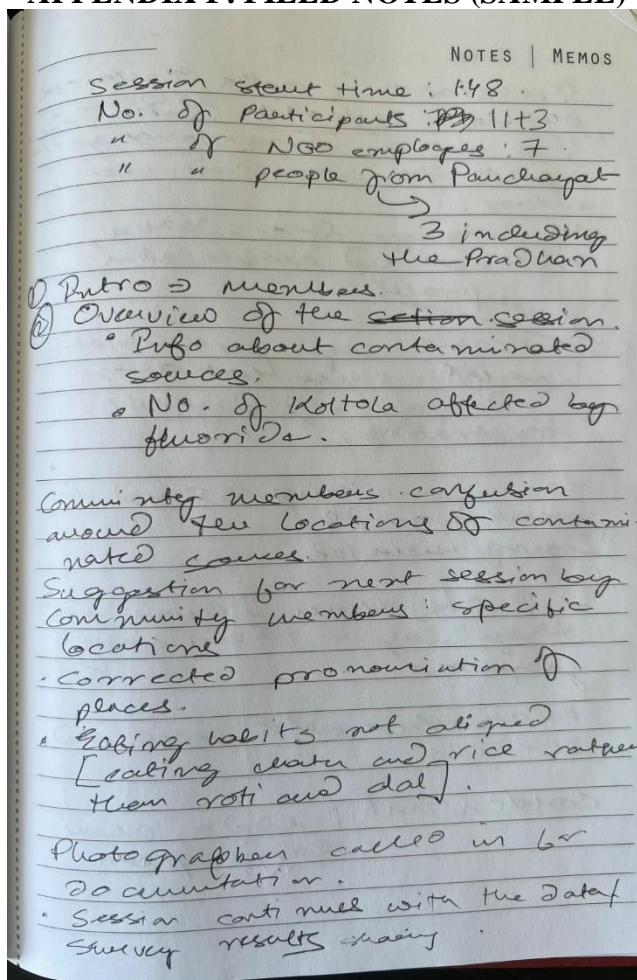 APPENDIX F: FIELD NOTES (SAMPLE)
NOTES | MEMOS
Session start time : 1:48 .
No. of Participants : 11+3
" of NGO employees : 7 .
" " people from Panchayat
3 including
the Pradhan
① Intro ⇒ members.
② Overview of the session.
• Info about contaminated
sources.
• No. of Koltola affected by
fluoride.
Community members confusion
around the locations of contami-
nated sources.
Suggestion for next session by
community members : specific
locations
• Corrected pronounciation of
places.
• Eating habits not aligned
[eating and rice rather
than roti and dal].
Photographer called in for
documentation.
• Session continues with the data/
survey results sharing .